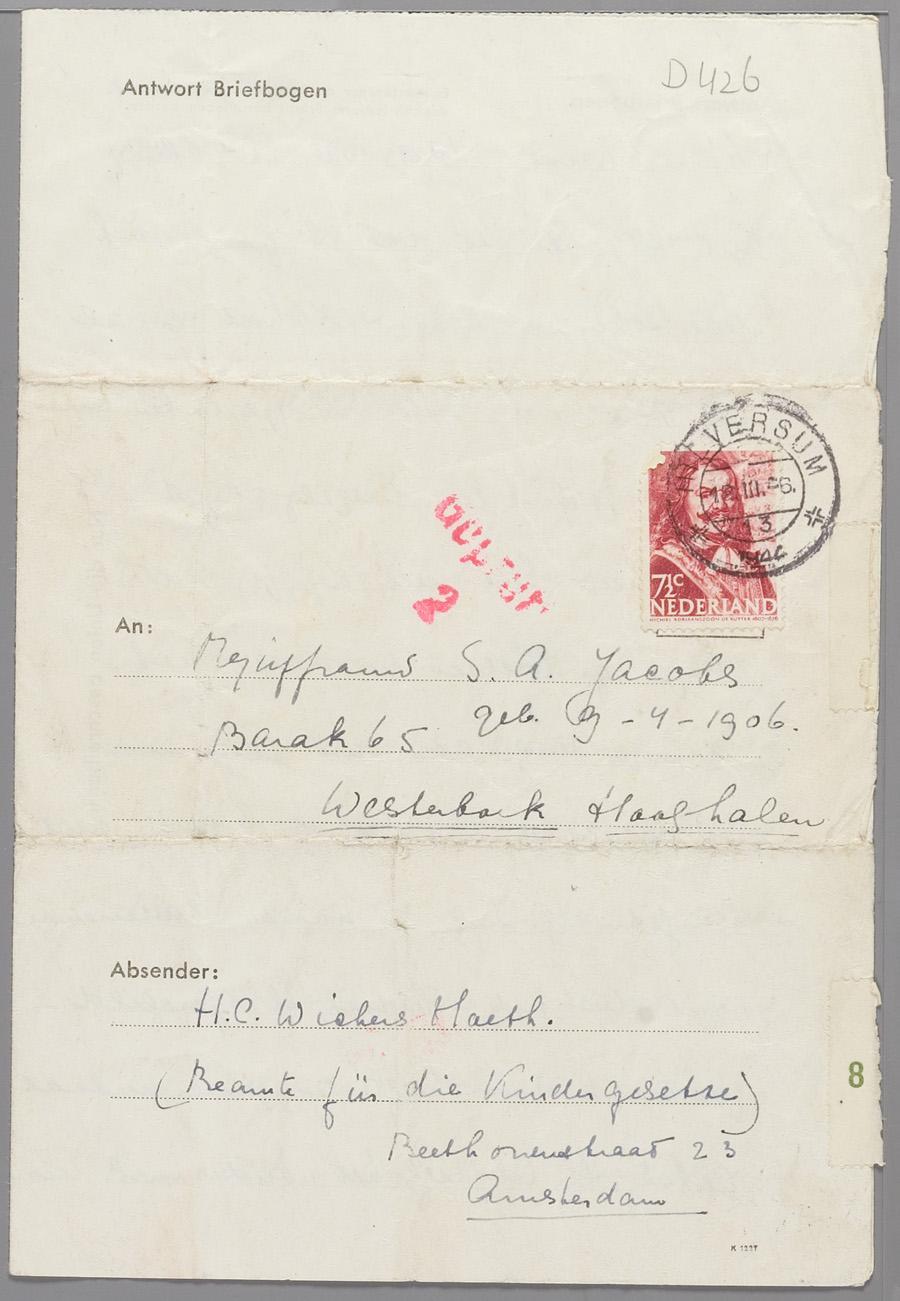 Antwort Briefbogen
D 426
HILVERSUM
1944
7½c
NEDERLAND
MICHIEL ADRIAANSZOON DE RUYTER 1607-1676
2
An:
Mejuffrouw S. A. Jacobs
geb. 9-4-1906.
Barak 65
Westerbork Hooghalen
Absender:
H.C. Wichers
(Beamte für die Kindergesetze)
Beethovenstraat 23
Amsterdam
8